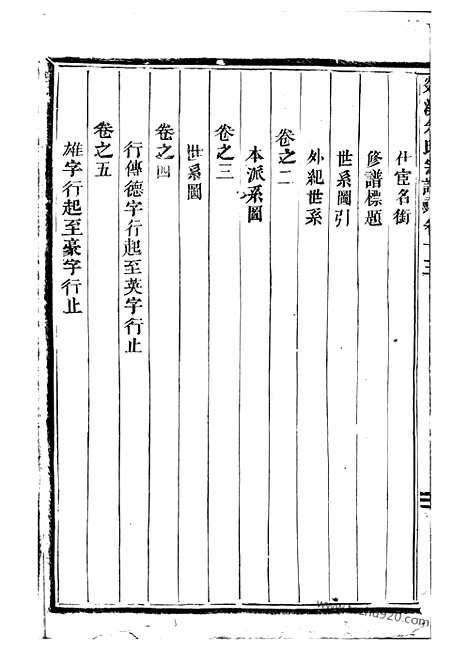 仕宦名銜
修譜標題
世系圖引
外紀世系
卷之二
本派系圖
卷之三
世系圖
卷之四
行傳德字行起至英字行止
卷之五
雄字行起至豪字行止